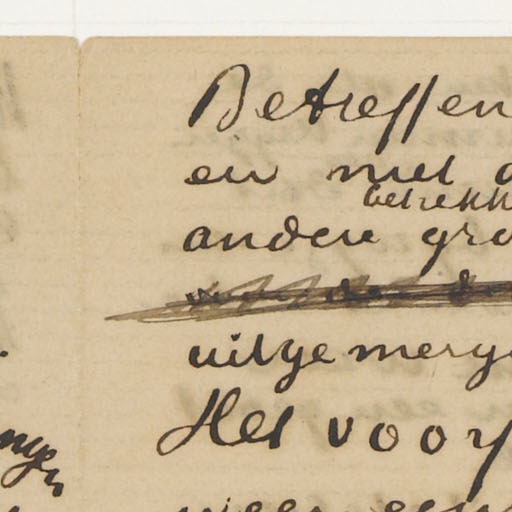 Betreffen
en met
betrekk
andere gro
uitgemerge
Het voor
weer een